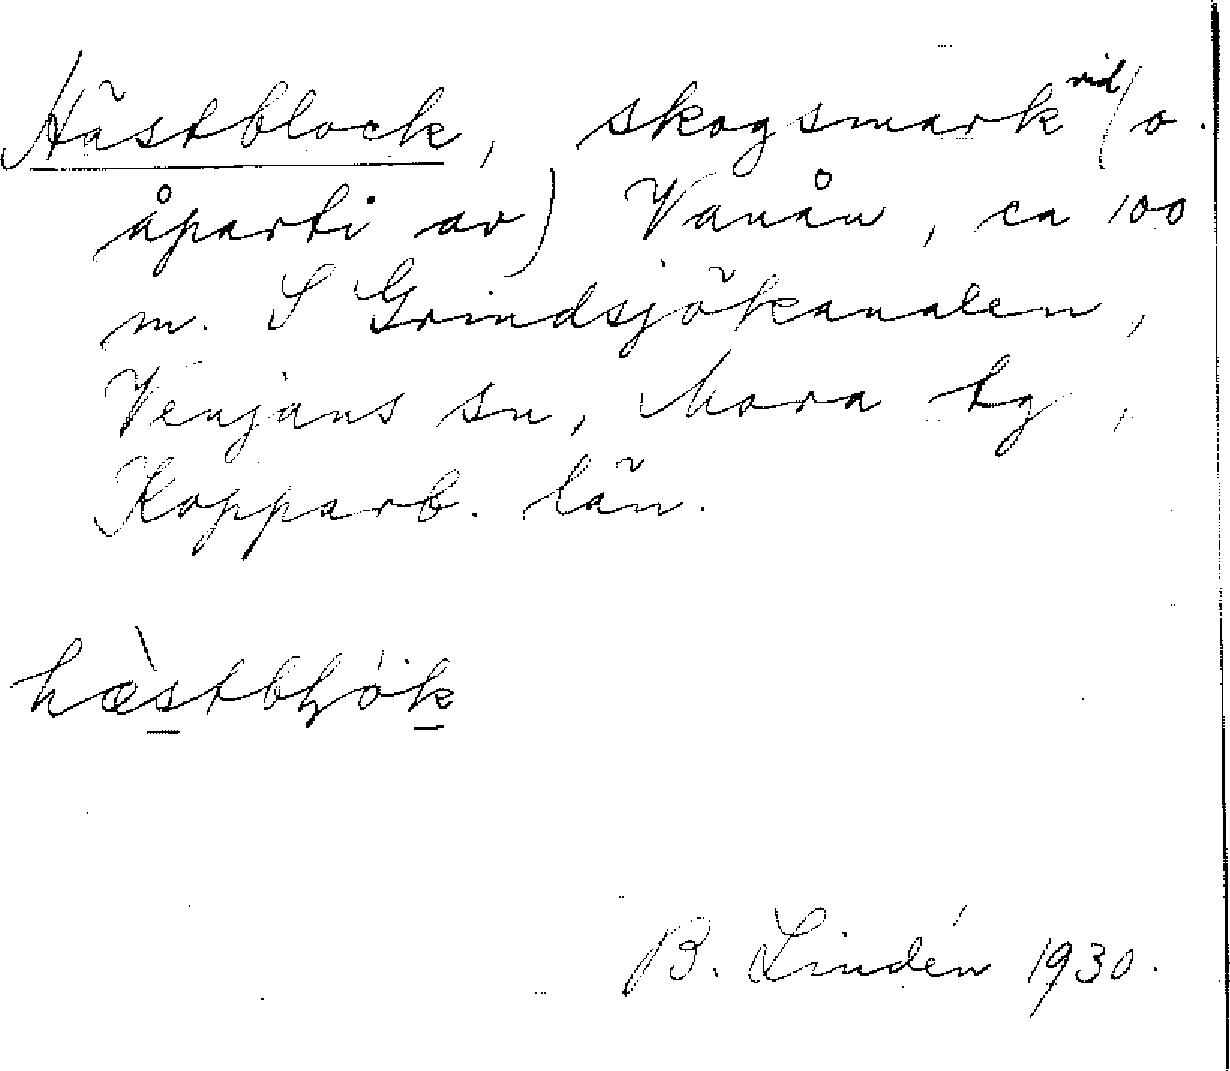 Hästblock, skogsmark vid (o.
åparti av) Vanån, ca 100
m. S Grindsjökanalen,
Venjans sn, Mora tg,
Kopparb. län.
B. Lindén 1930.